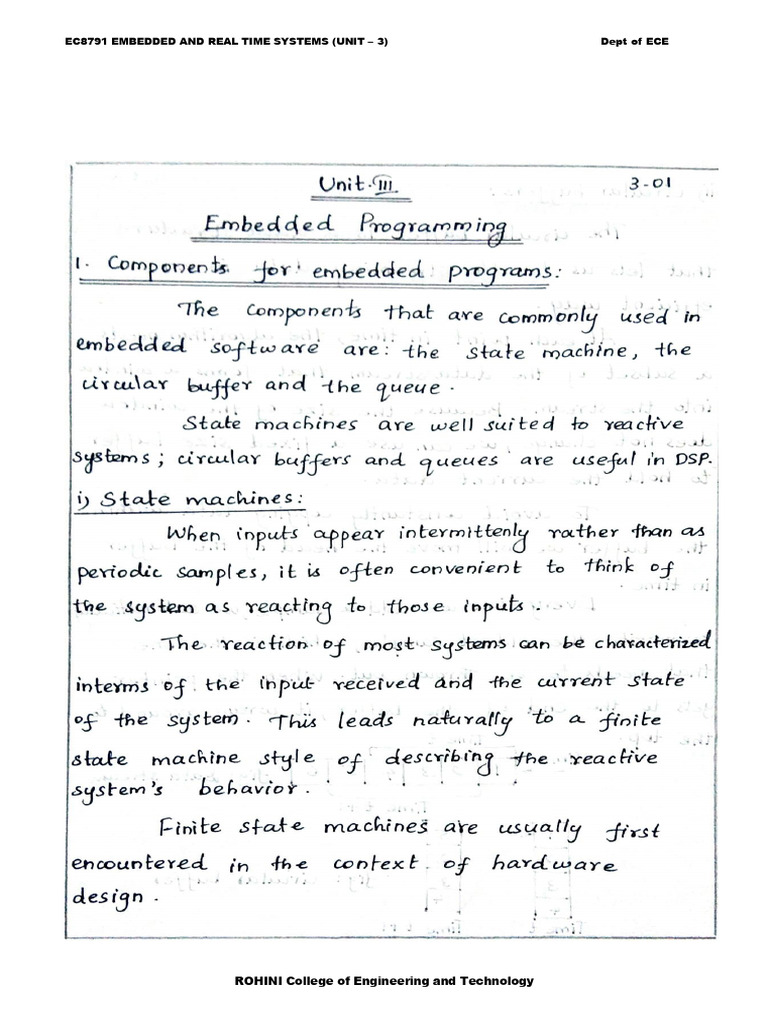 EC8791 EMBEDDED AND REAL TIME SYSTEMS (UNIT – 3) Dept of ECE
Unit-III 3-01
Embedded Programming
1. Components for embedded programs:
The components that are commonly used in
embedded software are: the state machine, the
circular buffer and the queue.
State machines are well suited to reactive
systems; circular buffers and queues are useful in DSP.
i) State machines:
When inputs appear intermittenly rather than as
periodic samples, it is often convenient to think of
the system as reacting to those inputs.
The reaction of most systems can be characterized
interms of the input received and the current state
of the system. This leads naturally to a finite
state machine style of describing the reactive
system's behavior.
Finite state machines are usually first
encountered in the context of hardware
design.
ROHINI College of Engineering and Technology